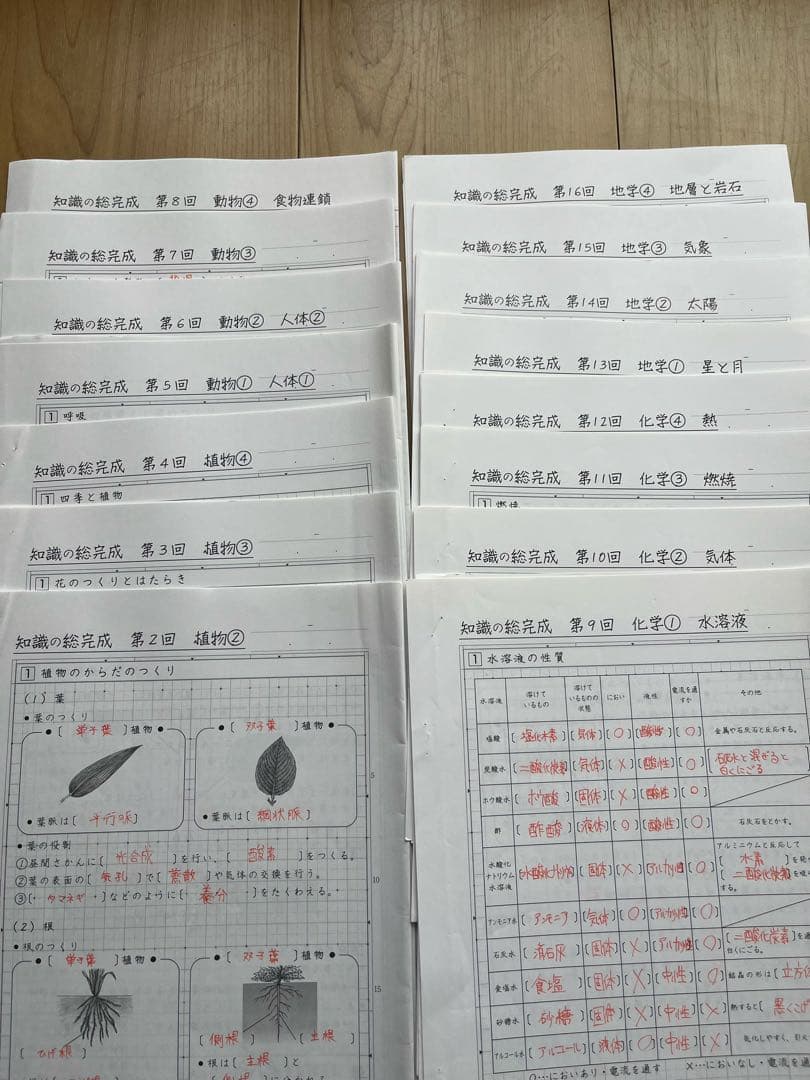 知識の総完成 第8回 動物④ 食物連鎖
知識の総完成 第7回 動物③
知識の総完成 第6回 動物② 人体②
知識の総完成 第5回 動物① 人体①
1 呼吸
知識の総完成 第4回 植物④
1 四季と植物
知識の総完成 第3回 植物③
1 花のつくりとはたらき
知識の総完成 第2回 植物②
1 植物のからだのつくり
(1) 葉
●葉のつくり
●[ 単子葉 ]植物●
●[ 双子葉 ]植物●
●葉脈は[ 平行脈 ]
●葉脈は[ 網状脈 ]
●葉の役割
①昼間さかんに[ 光合成 ]を行い、[ 酸素 ]をつくる。
②葉の表面の[ 気孔 ]で[ 蒸散 ]や気体の交換を行う。
③[ タマネギ ]などのように[ 養分 ]をたくわえる。
(2) 根
●根のつくり
●[ 単子葉 ]植物●
●[ 双子葉 ]植物●
[ ひげ根 ]
[ 側根 ] [ 主根 ]
●根は[ 主根 ]と
5
10
15
知識の総完成 第16回 地学④ 地層と岩石
知識の総完成 第15回 地学③ 気象
知識の総完成 第14回 地学② 太陽
知識の総完成 第13回 地学① 星と月
知識の総完成 第12回 化学④ 熱
知識の総完成 第11回 化学③ 燃焼
1 燃焼
知識の総完成 第10回 化学② 気体
知識の総完成 第9回 化学① 水溶液
1 水溶液の性質
水溶液 溶けているもの 溶けているものの状態 におい 液性 電流を通すか その他
塩酸 [ 塩化水素 ] [気体] [○] [酸性] [○] 金属や石灰石と反応する。
炭酸水 [二酸化炭素] [気体] [×] [酸性] [○] [石灰水と混ぜると白くにごる
ホウ酸水 [ ホウ酸 ] [固体] [×] [酸性] [○]
酢 [ 酢酸 ] [液体] [○] [酸性] [○] 石灰石をとかす。
水酸化ナトリウム水溶液 [水酸化ナトリウム] [固体] [×] [アルカリ性] [○] アルミニウムと反応して
[ 水素 ]を
[二酸化炭素]を
する。
アンモニア水 [ アンモニア ] [気体] [○] [アルカリ性] [○]
石灰水 [ 消石灰 ] [固体] [×] [アルカリ性] [○] [二酸化炭素]を通
白くにごる。
食塩水 [ 食塩 ] [固体] [×] [中性] [○] 結晶の形は[ 立方体
砂糖水 [ 砂糖 ] [固体] [×] [中性] [×] 熱すると[ 黒くこげ
アルコール水 [ アルコール ] [液体] [○] [中性] [×] 気化しやすく、引火
○…においあり・電流を通す ×…においなし・電流を通